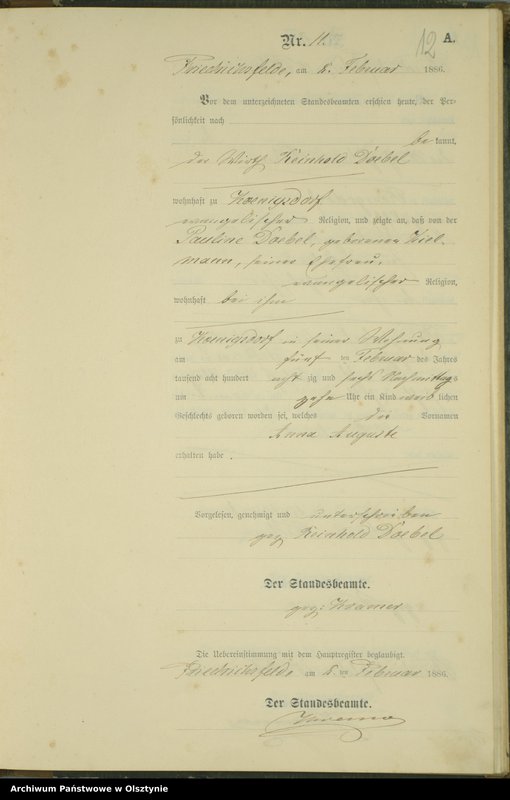 Nr. 11.
12 A.
Friedrichsfelde, am 8. Februar 1886.
Vor dem unterzeichneten Standesbeamten erschien heute, der Per-
sönlichkeit nach
be kannt,
der Wirth Reinhold Doebel
wohnhaft zu Koenigsdorf
evangelischer Religion, und zeigte an, daß von der
Pauline Doebel, geborenen Kiel-
mann, seiner Ehefrau,
evangelischer Religion,
wohnhaft bei ihm
zu Koenigsdorf in seiner Wohnung
am fünf ten Februar des Jahres
tausend acht hundert acht zig und sechs Nachmittags
um zehn Uhr ein Kind weib lichen
Geschlechts geboren worden sei, welches die Vornamen
Anna Auguste
erhalten habe.
Vorgelesen, genehmigt und unterschrieben
gez. Reinhold Doebel
Der Standesbeamte.
gez:
Die Uebereinstimmung mit dem Hauptregister beglaubigt.
Friedrichsfelde, am 8. ten Februar 1886.
Der Standesbeamte.
Archiwum Państwowe w Olsztynie